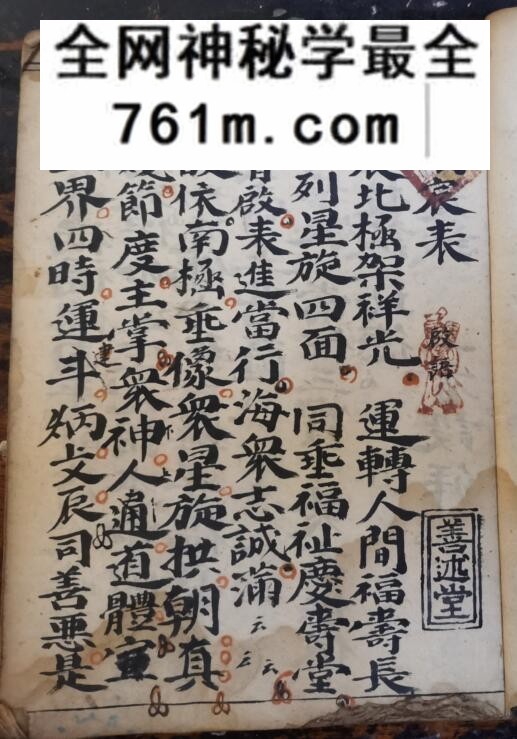 全网神秘学最全
761m.com
表
啟請
善述堂
北極架祥光 運轉人間福壽長
列星旋四面 同垂福祉慶壽堂
啟表進當行海衆志誠滿
依南極垂像衆星旋拱朝真
節度主掌衆神人通道體宣
界四時運斗炳文辰司善惡是
建